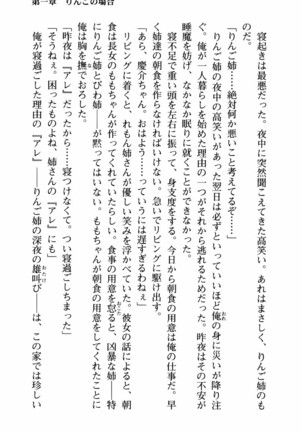 第一章　りんごの場合
　寝起きは最悪だった。夜中に突然聞こえてきた高笑い。あれはまさしく、りんご姉のも
のだ。
「りんご姉……絶対何か悪いこと考えてるぞ……」
　りんご姉の夜中の高笑いがあった翌日は必ずといっていいほど俺の身に災いが降り注
ぐ。俺が一人暮らしを始めた理由の一つがそれから逃れるためだった。昨夜はその不安が
睡魔を妨げ、なかなか眠りに就くことができなかった。
　寝不足で重い頭を左右に振って、身支度をする。今日から朝食の用意は俺の仕事だ。早
く姉達の朝食を作らなければいけない。急いでリビングに駆け出す。
「あら、慶介ちゃん。おはよう……っていうには遅すぎるわねぇ」
　リビングに着くと、れもん姉さんが優しい笑みを浮かべていた。彼女の話によると、朝
食は長女のももちゃんが作ってくれていたらしい。食事の用意を怠ると、凶暴な姉――特
にりんご姉とびわ姉――が黙ってはいない。ももちゃんが朝食の用意をしてくれたことに
俺は胸を撫でおろした。
「昨夜は『アレ』だったから……寝つけなくて。つい寝過ごしちまった」
「そうねぇ。困ったものよね、姉さんの『アレ』にも」
　俺が寝過ごした理由の『アレ』――りんご姉の深夜の雄叫び――は、この家では珍しい